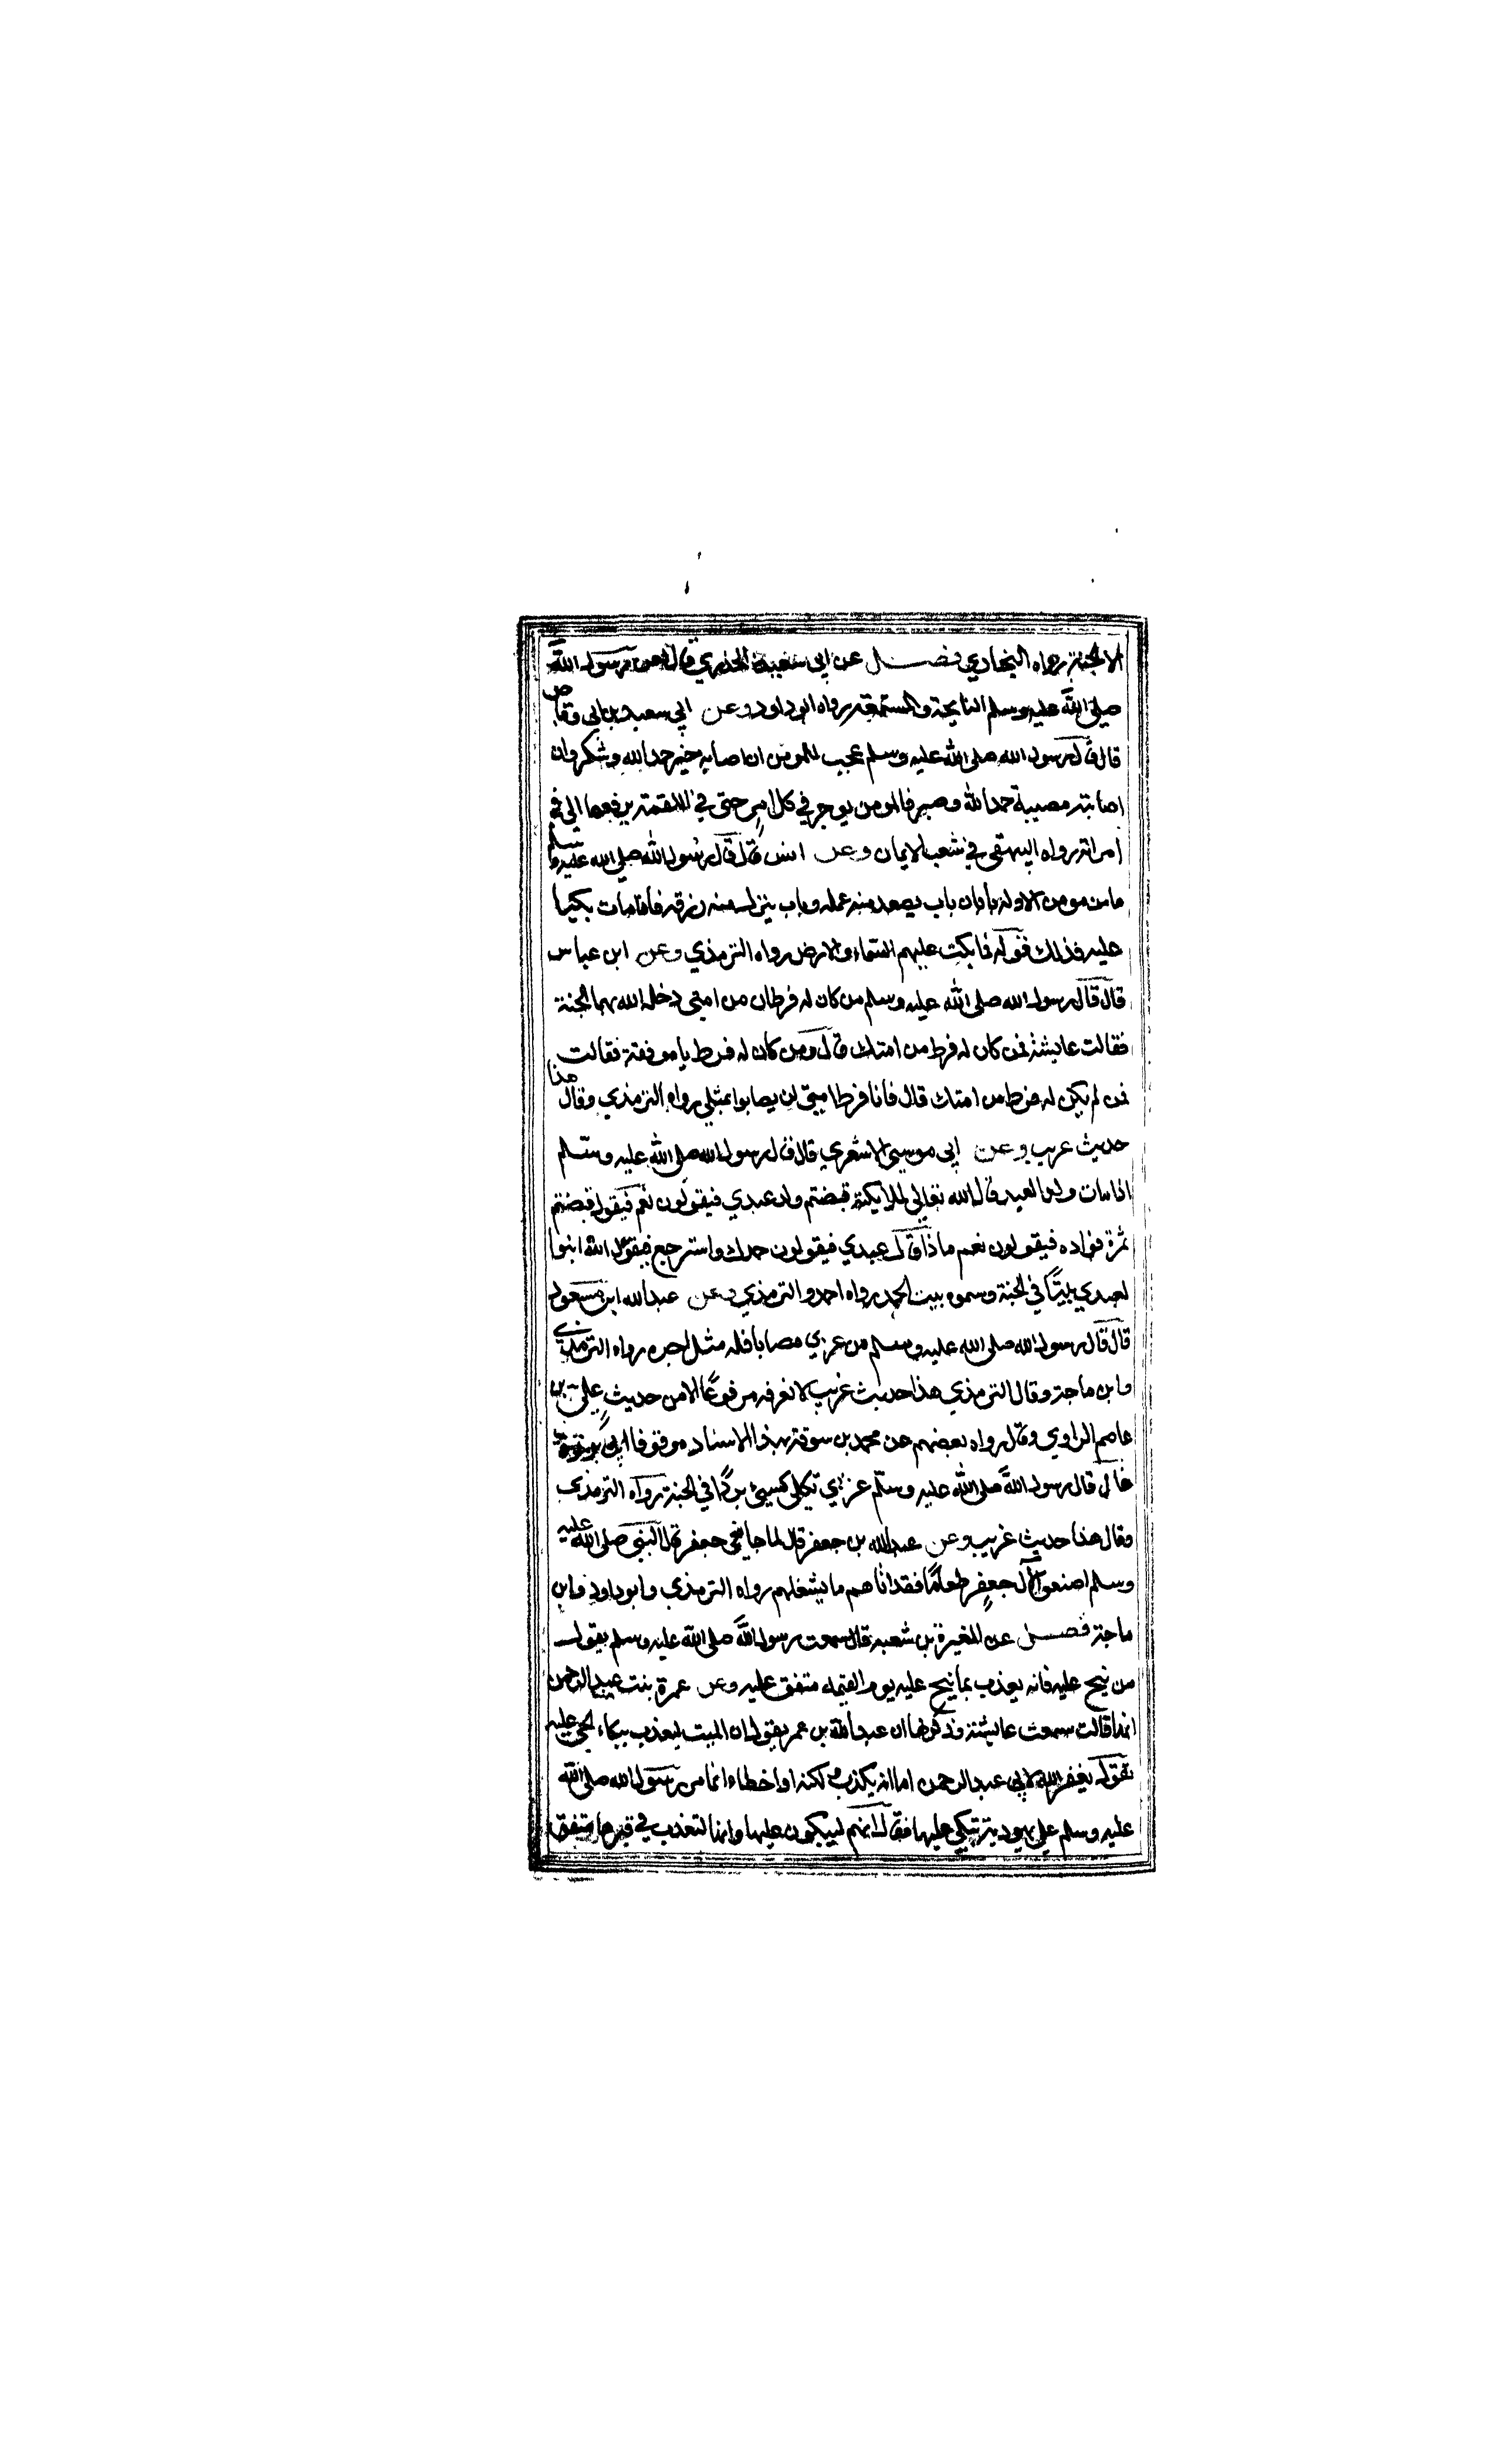 الا الجنة رواه البخاري فصل عن ابي سعيد الخدري قال لعن رسول الله
صلى الله عليه وسلم النايحة والمستمعة رواه ابو داود وعن ابي سعيد بن ابي وقاص
قال قال رسول الله صلى الله عليه وسلم عجب للمومن ان اصابه خير حمد الله وشكر وان
اصابته مصيبة حمد الله وصبر فالمومن يوجر في كل امر حتى في اللقمة يرفعها الى في
امراته رواه البيهقي في شعب الايمان وعن انس قال قال رسول الله صلى الله عليه وسلم
ما من مومن الا وله بابان باب يصعد منه عمله وباب ينزل منه رزقه فاذا مات بكيا
عليه فذلك قوله فما بكت عليهم السماء والارض رواه الترمذي وعن ابن عباس
قال قال رسول الله صلى الله عليه وسلم من كان له فرطان من امتي دخله الله بهما الجنة
فقالت عايشة فمن كان له فرط من امتك قال ومن كان له فرط يا موفقة فقالت
فمن لم يكن له فرط من امتك قال فانا فرط امتي لن يصابوا بمثلي رواه الترمذي وقال هذا
حديث غريب وعن ابي موسى الاشعري قال قال رسول الله صلى الله عليه وسلم
اذا مات ولد العبد قال الله تعالى لملايكته قبضتم ولد عبدي فيقولون نعم فيقول قبضتم
ثمرة فواده فيقولون نعم ماذا قال عبدي فيقولون حمدك واسترجع فيقول الله ابنوا
لعبدي بيتا في الجنة وسموه بيت الحمد رواه احمد والترمذي وعن عبد الله ابن مسعود
قال قال رسول الله صلى الله عليه وسلم من عزي مصابا فله مثل اجره رواه الترمذي
وابن ماجة وقال الترمذي هذا حديث غريب لا نعرفه مرفوعا الا من حديث علي بن
عاصم الراوي وقال رواه بعضهم عن محمد بن سوقة بهذا الاسناد موقوفا ابي برزة
قال قال رسول الله صلى الله عليه وسلم عزي ثكلى كسي بردا في الجنة رواه الترمذي
وقال هذا حديث غريب وعن عبد الله بن جعفر قال لما جا نعي جعفر قال النبي صلى الله عليه
وسلم اصنعوا لآل جعفر طعاما فقد اتاهم ما يشغلهم رواه الترمذي وابو داود وابن
ماجة فصل عن المغيرة بن شعبه قال سمعت رسول الله صلى الله عليه وسلم يقول
من نيح عليه فانه يعذب بما نيح عليه يوم القيمة متفق عليه وعن عمرة بنت عبد الرحمن
انها قالت سمعت عايشة وذكر لها ان عبد الله بن عمر يقول ان الميت ليعذب ببكاء الحي عليه
تقول يغفر الله لابي عبد الرحمن اما انه يكذب لكنه او اخطاء انما مر رسول الله صلى الله
عليه وسلم على يهودية تبكي عليها فقال انهم ليبكون عليها وانها لتعذب في قبرها متفق